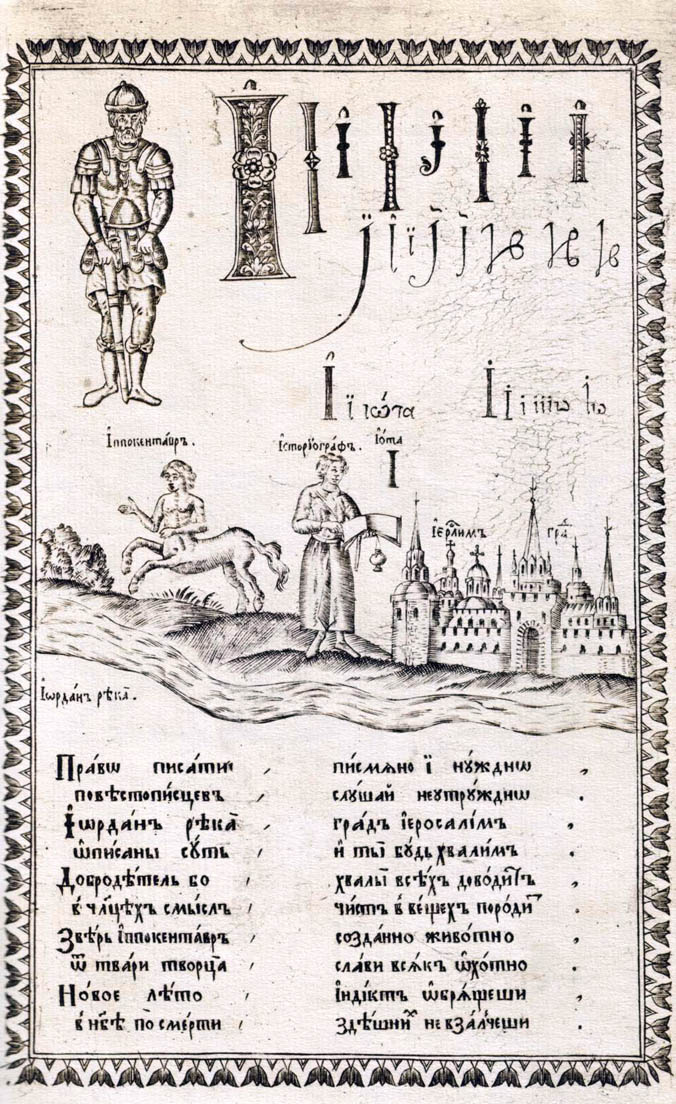 І ї іѡ́та
І І і іііѡ іѡ
Іппокента́връ.
Історїогра́фъ.
Іѡта
І
Іер҃ли́мъ гра́д
Іѡрда́нъ рѣка̀.
Пра́вѡ писа́ти , письмяно ї ну́жднѡ ,
повѣстопи́сцевъ , слу́шай неꙋтрꙋ́жднѡ .
Іѡрда́нъ рѣка̀ , гра́дъ іеросали́мъ ,
ѡпи́саны сꙋ́ть , и҆ ты̀ бꙋ́дь хвали́мъ .
Добродѣ́тель бо , хвалы̀ всѣ́хъ дово́дитъ ,
в̾ чл҃цѣхъ смы́слъ , чи́стъ в̾ ве́щехъ поро́дит .
Звѣ́рь іппокента́връ , созда́нно живо́тно ,
ѿ тва́ри творца̀ , сла́ви вся́къ ѡхо́тно .
Но́вое лѣ́то , і҆нді́ктъ ѡбря́щеши ,
в̾ нб҃ѣ по сме́рти , здѣ́шних не взал́чеши .